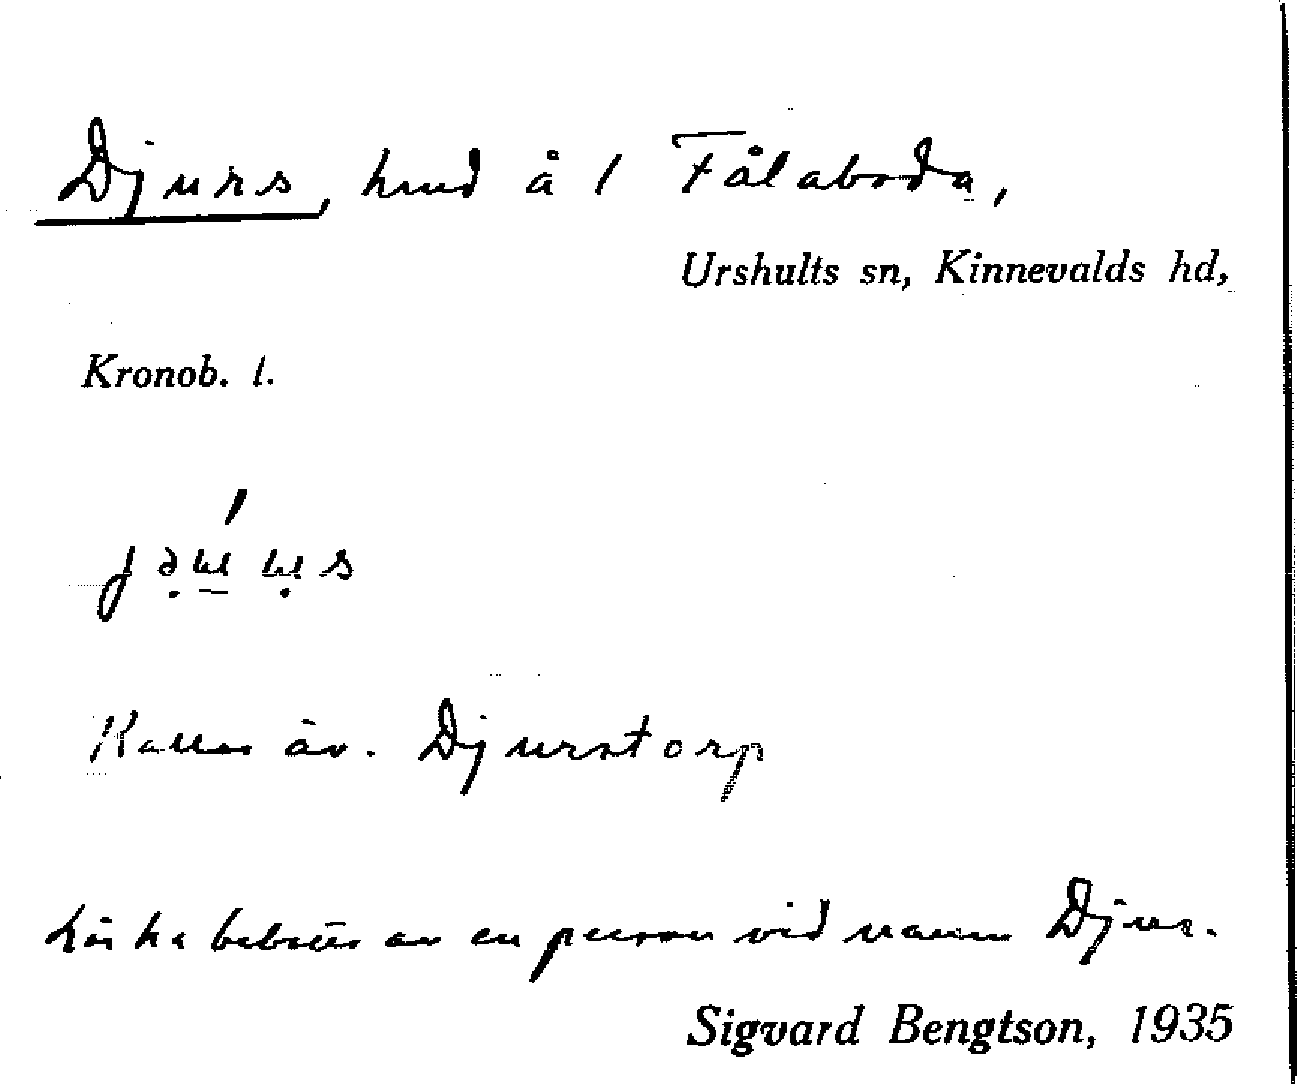 Djurs, hmd å 1 Fålaboda,
Urshults sn, Kinnevalds hd,
Kronob. l.
Kallas äv. Djurstorp
Lär ha bebotts av en person vid namn Djur.
Sigvard Bengtson, 1935